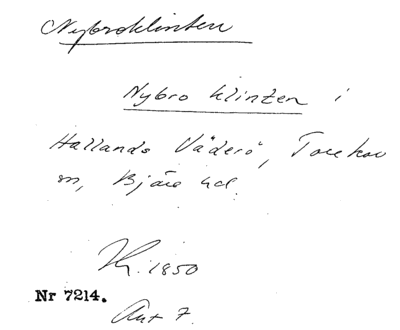 Nybroklinten
Nybro klinten i
Hallands Väderö, Torekov
sn, Bjäre hd.
1850
Nr 7214.
Ant 7.